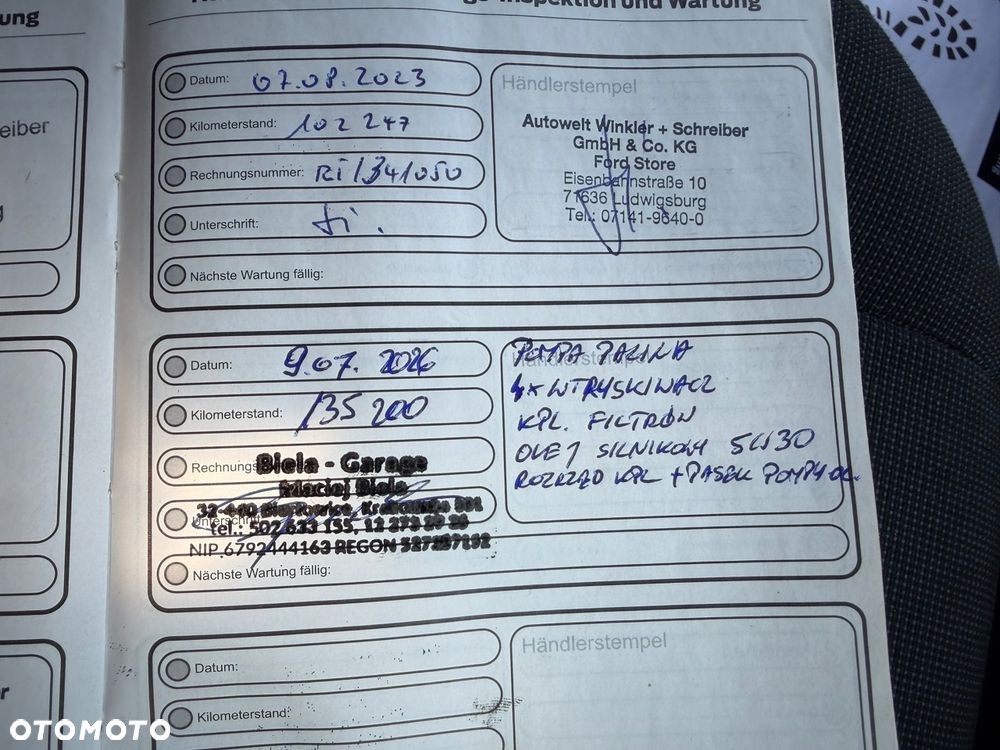 ung
Inspektion und Wartung
eiber
Datum: 07.08.2023
Kilometerstand: 102 247
Rechnungsnummer: RI/341050
Unterschrift:
Nächste Wartung fällig:
Händlerstempel
Autowelt Winkler + Schreiber
GmbH & Co. KG
Ford Store
Eisenbahnstraße 10
71636 Ludwigsburg
Tel.: 07141-9640-0
Datum: 9.07. 2026
Kilometerstand: 135 200
Biela - Garage
Maciej Biela
NIP 6792444163 REGON
Nächste Wartung fällig:
Händlerstempel
POMPA PALIWA
4x WTRYSKIWACZ
KPL. FILTRÓW
OLEJ SILNIKOWY 5W30
ROZRZĄD KPL + PASEK POMPY OL.
Händlerstempel
Datum:
Kilometerstand:
OTOMOTO